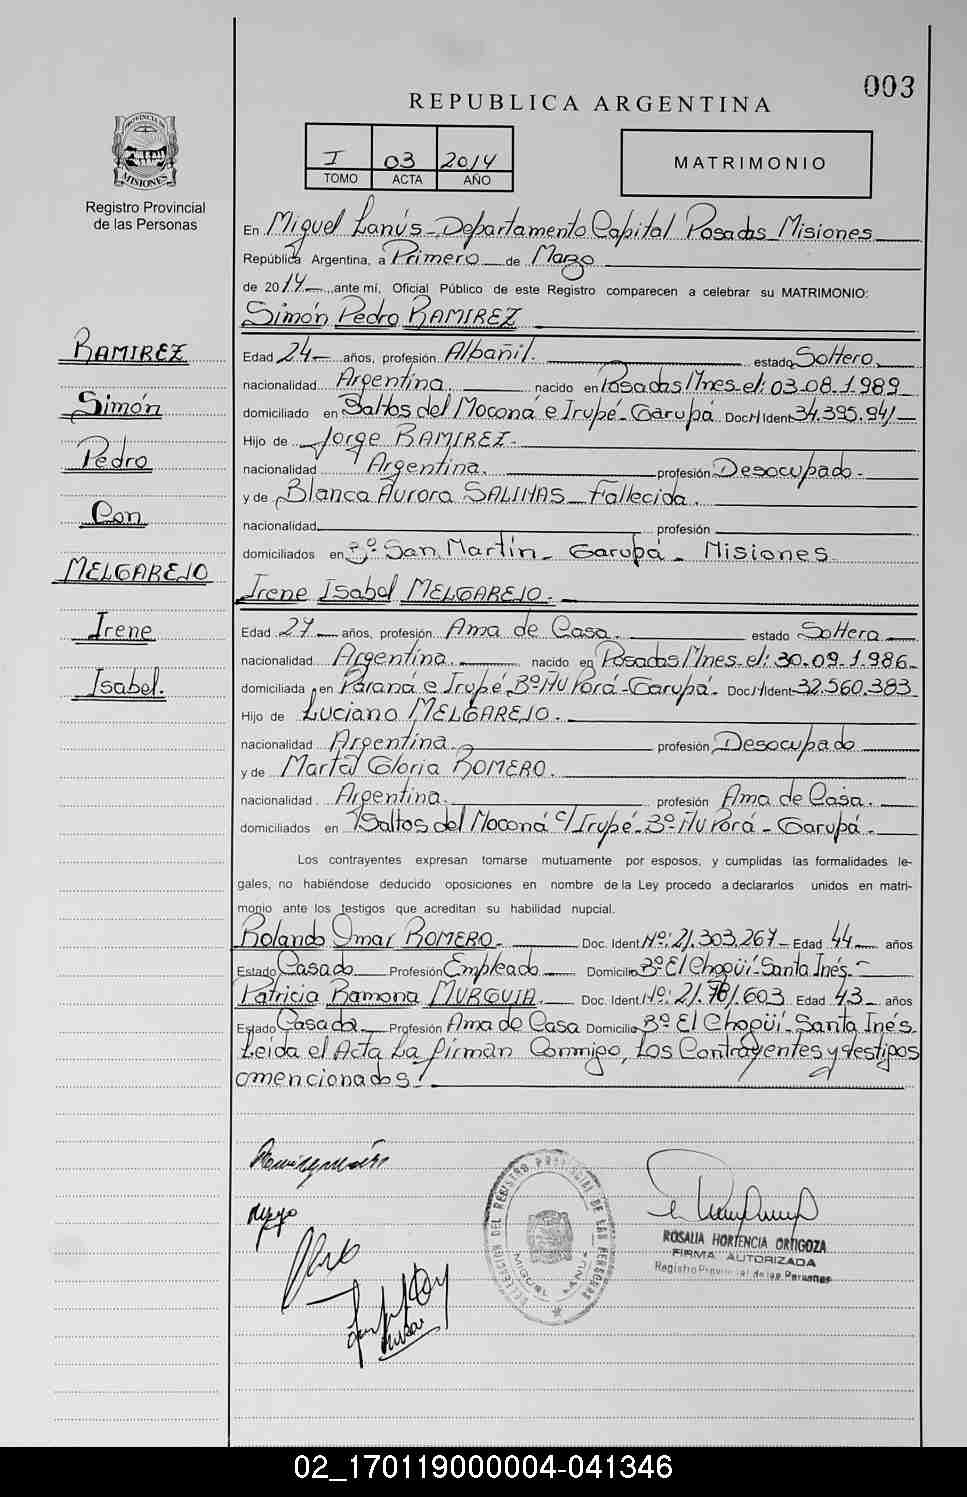 003
REPUBLICA ARGENTINA
PROVINCIA DE
MISIONES
Registro Provincial
de las Personas
I 03 2014
TOMO ACTA AÑO
MATRIMONIO
En Miguel Lanús - Departamento Capital Posadas Misiones
República Argentina, a Primero de Marzo
de 2014 ante mí, Oficial Público de este Registro comparecen a celebrar su MATRIMONIO:
Simón Pedro RAMIREZ
RAMIREZ
Simón
Pedro
Con
MELGAREJO
Irene
Isabel.
Edad 24- años, profesión Albañil. estado Soltero
nacionalidad Argentina. nacido en Posadas Mnes. el: 03.08.1.989
domiciliado en Saltos del Moconá e Irupé - Garupá Doc. Ident 34.395.941-
Hijo de Jorge RAMIREZ-
nacionalidad Argentina. profesión Desocupado-
y de Blanca Aurora SALINAS Fallecida.
nacionalidad profesión
domiciliados en Bº San Martin - Garupá - Misiones
Irene Isabel MELGAREJO.-
Edad 27 años, profesión Ama de Casa. estado Soltera
nacionalidad Argentina. nacido en Posadas Mnes. el: 30.09.1.986-
domiciliada en Paraná e Irupé Bº Ñu Porá - Garupá- Doc. Ident 32.560.383
Hijo de Luciano MELGAREJO.
nacionalidad Argentina profesión Desocupado
y de Marta Gloria ROMERO.
nacionalidad Argentina. profesión Ama de Casa.
domiciliados en Saltos del Moconá c/ Irupé - Bº Ñu Porá - Garupá-
Los contrayentes expresan tomarse mutuamente por esposos, y cumplidas las formalidades le-
gales, no habiéndose deducido oposiciones en nombre de la Ley procedo a declararlos unidos en matri-
monio ante los testigos que acreditan su habilidad nupcial.
Rolando Omar ROMERO. Doc. Ident Nº: 21.303.267- Edad 44 años
Estado Casado Profesión Empleado Domicilio Bº El Chogüí - Santa Inés-
Patricia Ramona MURGUIA. Doc. Ident Nº: 21.781.603 Edad 43- años
Estado Casada Profesión Ama de Casa Domicilio Bº El Chogüí - Santa Inés.
Leida el Acta La firman Conmigo, Los Contrayentes y testigos
mencionados
DELEGACION DEL REGISTRO PROVINCIAL DE LAS PERSONAS
MIGUEL LANUS
ROSALIA HORTENCIA ORTIGOZA
FIRMA AUTORIZADA
Registro Provincial de las Personas
02_170119000004-041346